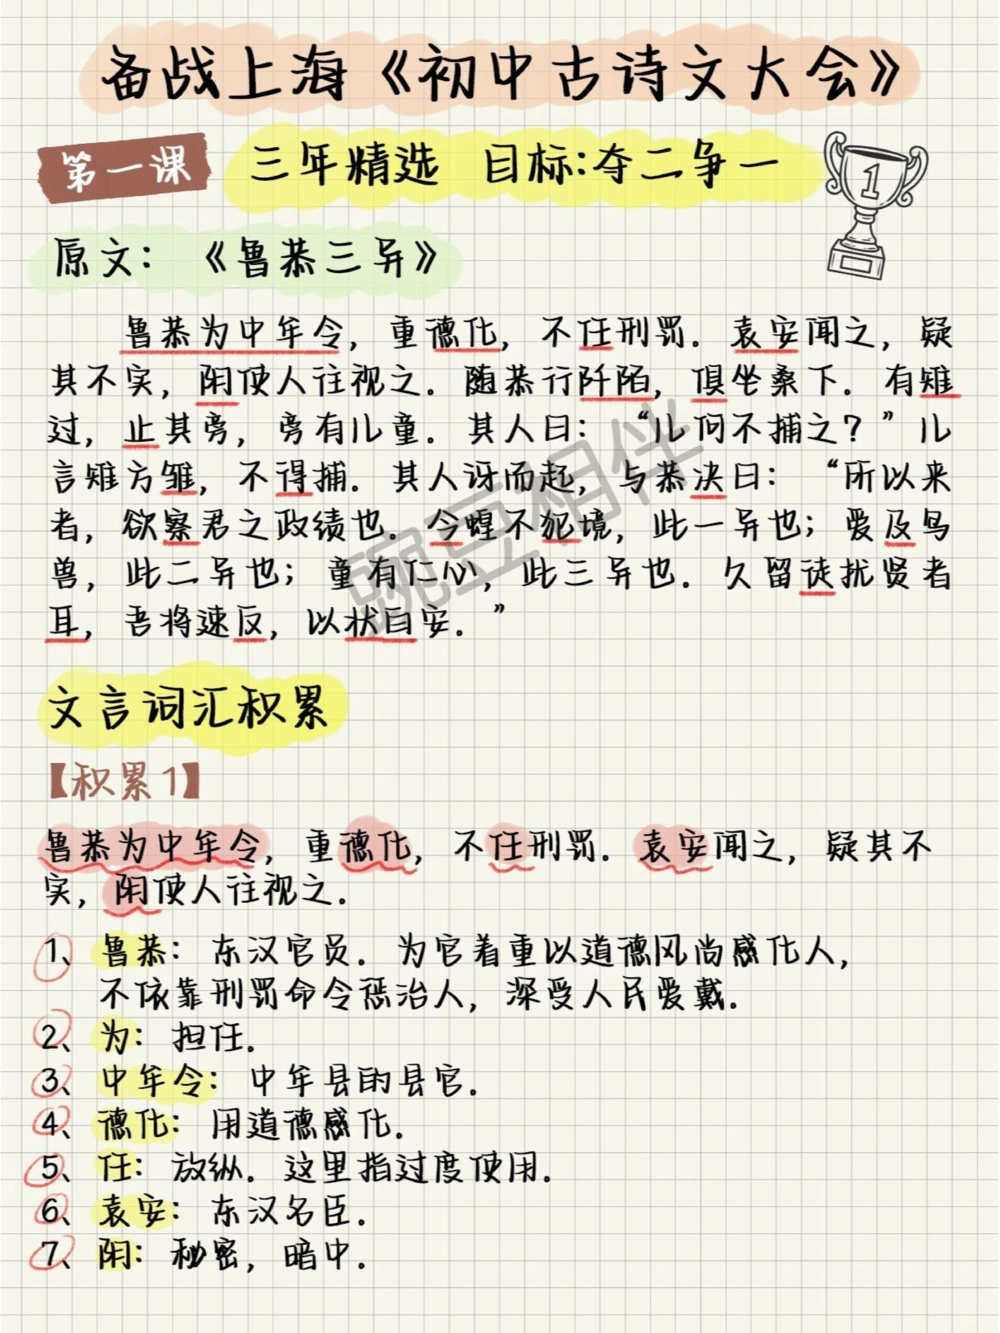 备战上海《初中古诗文大会》
第一课
三年精选 目标:夺二争一
1
原文：《鲁恭三异》
鲁恭为中年令，重德化，不任刑罚．袁安闻之，疑
其不实，阴使人往视之．随恭行阡陌，俱坐桑下．有雉
过，止其旁，旁有儿童．其人曰：“儿何不捕之？”儿
言雉方雏，不得捕．其人讶而起，与恭决曰：“所以来
者，欲察君之政绩也．今蝗不犯境，此一异也；爱及鸟
兽，此二异也；童有仁心，此三异也．久留徒扰贤者
耳，吾将速反，以状自安．”
豌豆相伴
文言词汇积累
【积累1】
鲁恭为中年令，重德化，不任刑罚．袁安闻之，疑其不
实，阴使人往视之．
1、鲁恭：东汉官员．为官着重以道德风尚感化人，
不依靠刑罚命令惩治人，深受人民爱戴．
2、为：担任．
3、中年令：中年县的县官．
4、德化：用道德感化．
5、任：放纵．这里指过度使用．
6、袁安：东汉名臣．
7、阴：秘密，暗中．